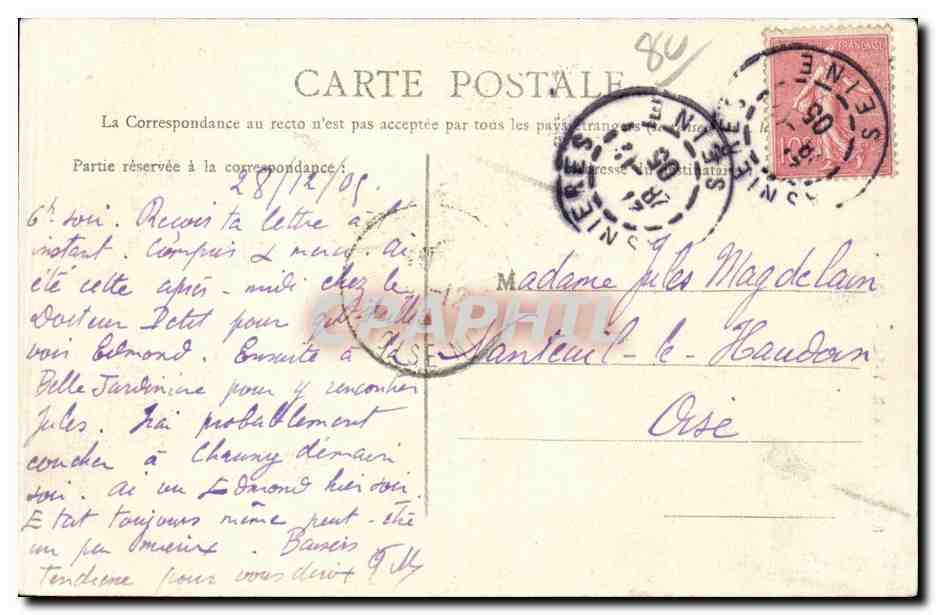 80
CARTE POSTALE
La Correspondance au recto n'est pas acceptée par tous les pays étrangers
Partie réservée à la correspondance :
Adresse du destinataire
FRANÇAISE
10
ASNIERES
SEINE
28
12
05
ASNIERES
SEINE
05
OISE
CPAPHIL
28/12/05
6h soir. Reçois ta lettre à l'
instant. Compris & merci. Ai
été cette après-midi chez le
Docteur Petit pour
voir Edmond. Ensuite à
Belle Jardinière pour y rencontrer
Jules. Irai probablement
coucher à Chauny demain
soir. ai vu Edmond hier soir.
Etat toujours même peut-être
un peu mieux. Baisers
tendresse pour vous deux
Madame Jules Magdelain
Nanteuil-le-Haudoin
Oise